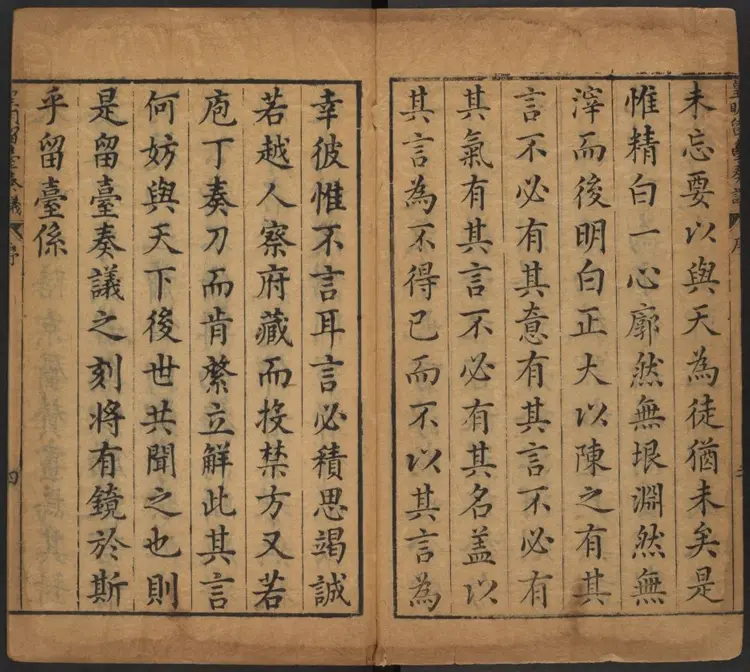 未忘要以與天為徒猶未矣是
惟精白一心廓然無垠淵然無
滓而後明白正大以陳之有其
言不必有其意有其言不必有
其氣有其言不必有其名盖以
其言為不得已而不以其言為
幸彼惟不言耳言必積思竭誠
若越人察府藏而投禁方又若
庖丁奏刀而肯綮立解此其言
何妨與天下後世共聞之也則
是留臺奏議之刻將有鏡於斯
乎留臺係
留臺奏議
序
四